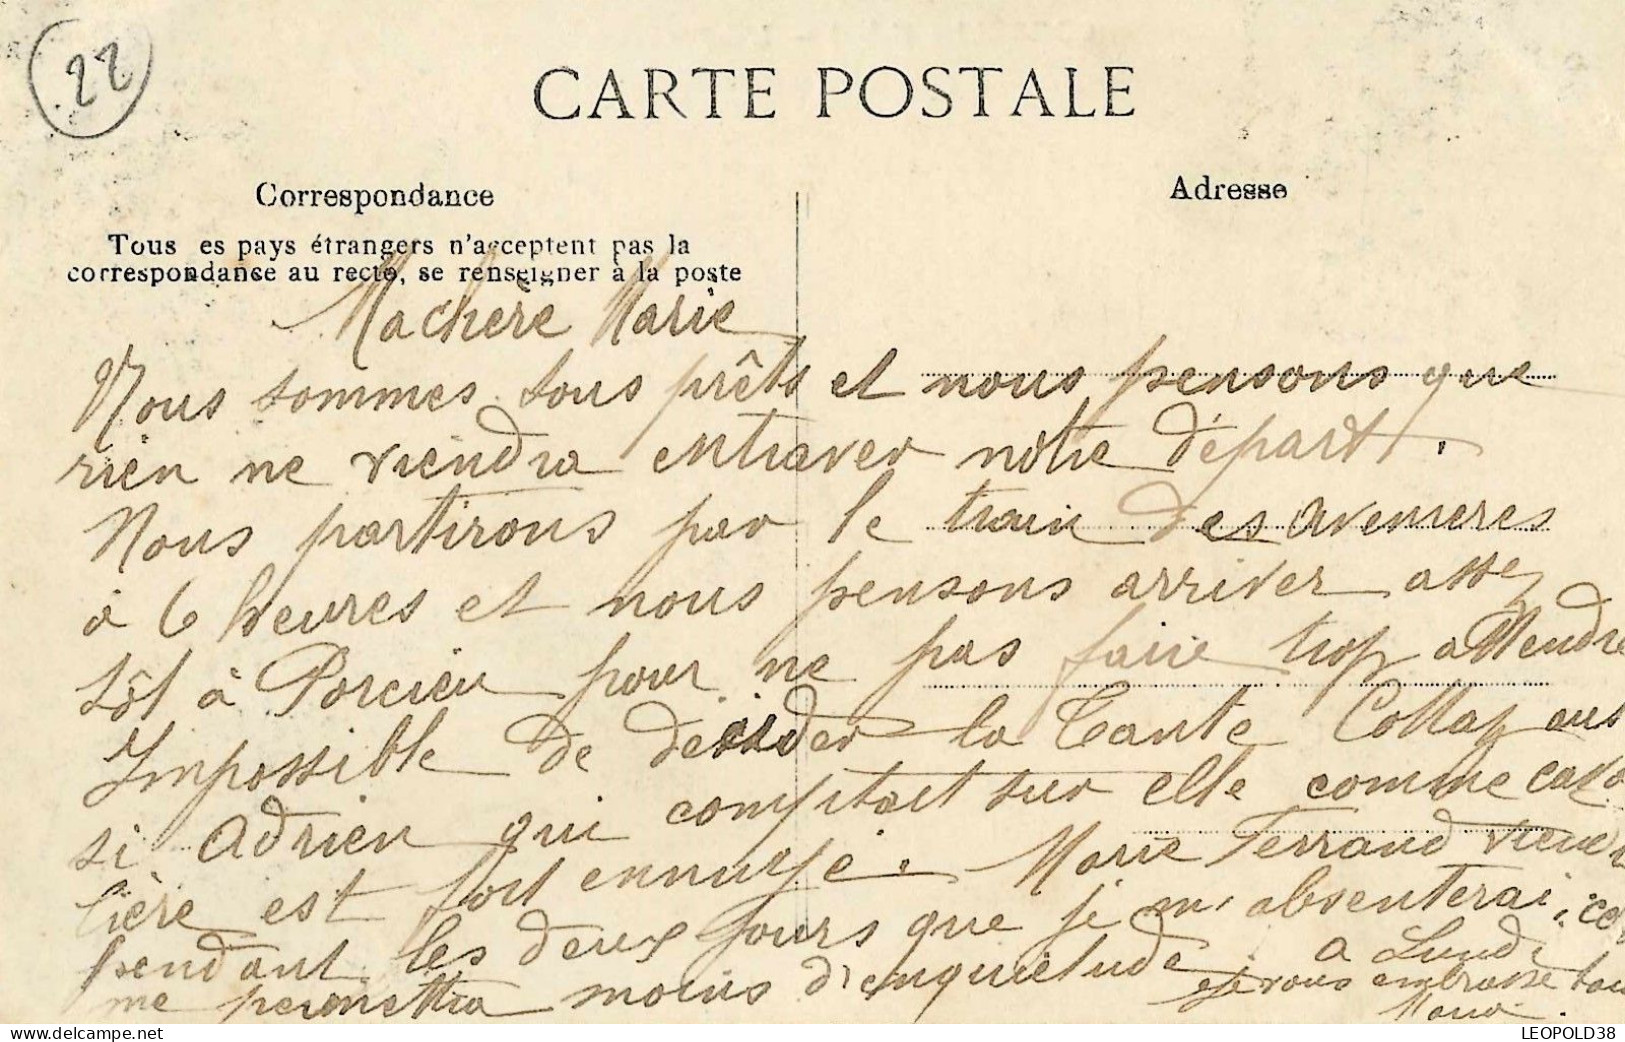 22
CARTE POSTALE
Correspondance
Adresse
Tous es pays étrangers n'acceptent pas la
correspondance au recto, se renseigner à la poste
Machère Marie
Nous sommes tous prêts et nous pensons que
rien ne viendra entraver notre départ.
Nous partirons par le train des avenieres
à 6 heures et nous pensons arriver assez
tôt à Porcieu pour ne pas faire trop attendre
Impossible de decider la Tante Collaz aus
si Adrien qui comptait sur elle comme cava
lière est fort ennuyé. Marie Ferrand viend
pendant les deux jours que je m'absenterai, ce
me permettra moins d'enquiétude. a Lundi
Je vous embrasse tous
Maria.
LEOPOLD38